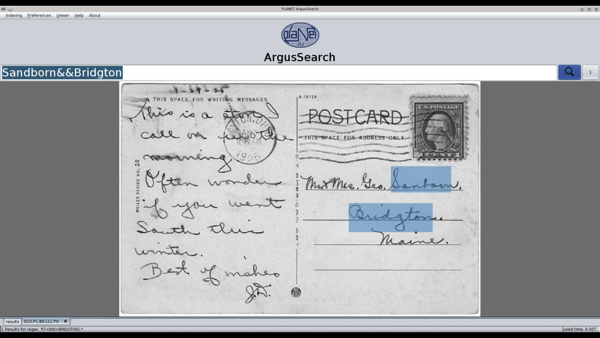 PLANET ArgusSearch
Indexing Preferences Viewer Help About
PLANET
ArgusSearch
Sandborn&&Bridgton
THIS SPACE FOR WRITING MESSAGES
POSTCARD
THIS SPACE FOR ADDRESS ONLY
U.S. POSTAGE
This is a
call on the
morning
Often wonder
if you went
South this
winter.
Best of wishes
J.D.
1906
Mr & Mrs. Geo. Sanborn,
Bridgton,
Maine.
results
used time: 0.007